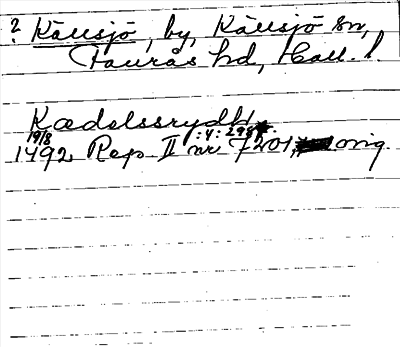 ? Källsjö, by, Källsjö sn,
Faurås hd, Hall. l.
Kædelssrydh
19/8 :4: 298
1492 Rep II nr 7201, orig.